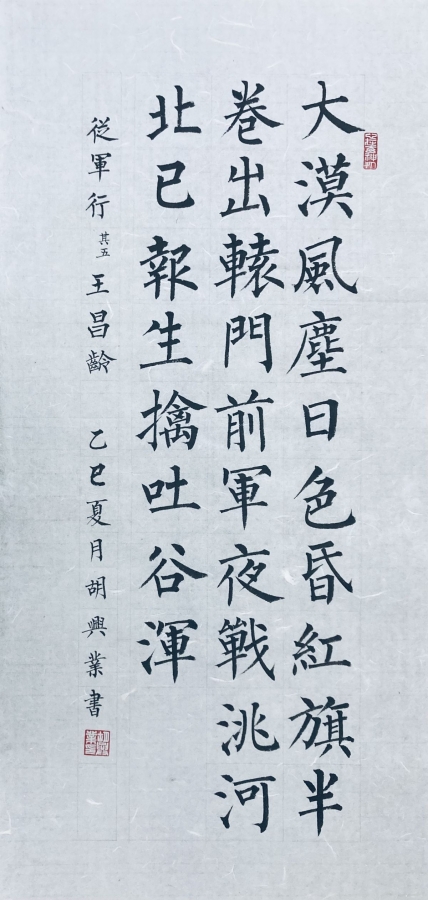 大漠風塵日色昏紅旗半
卷出轅門前軍夜戰洮河
北已報生擒吐谷渾
從軍行其五王昌齡 乙巳夏月胡興業書